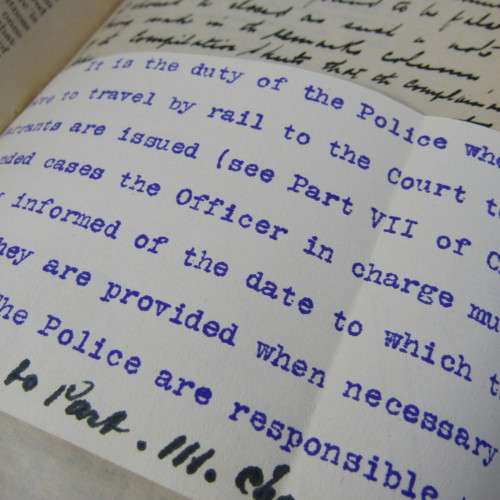 to be false
is classed as such a not
being made in the remarks column,
compilation, that the complain
It is the duty of the Police whe
ave to travel by rail to the Court to
arrants are issued (see Part VII of C
nded cases the Officer in charge mu
informed of the date to which th
hey are provided when necessary
The Police are responsible
to Part. III. cha